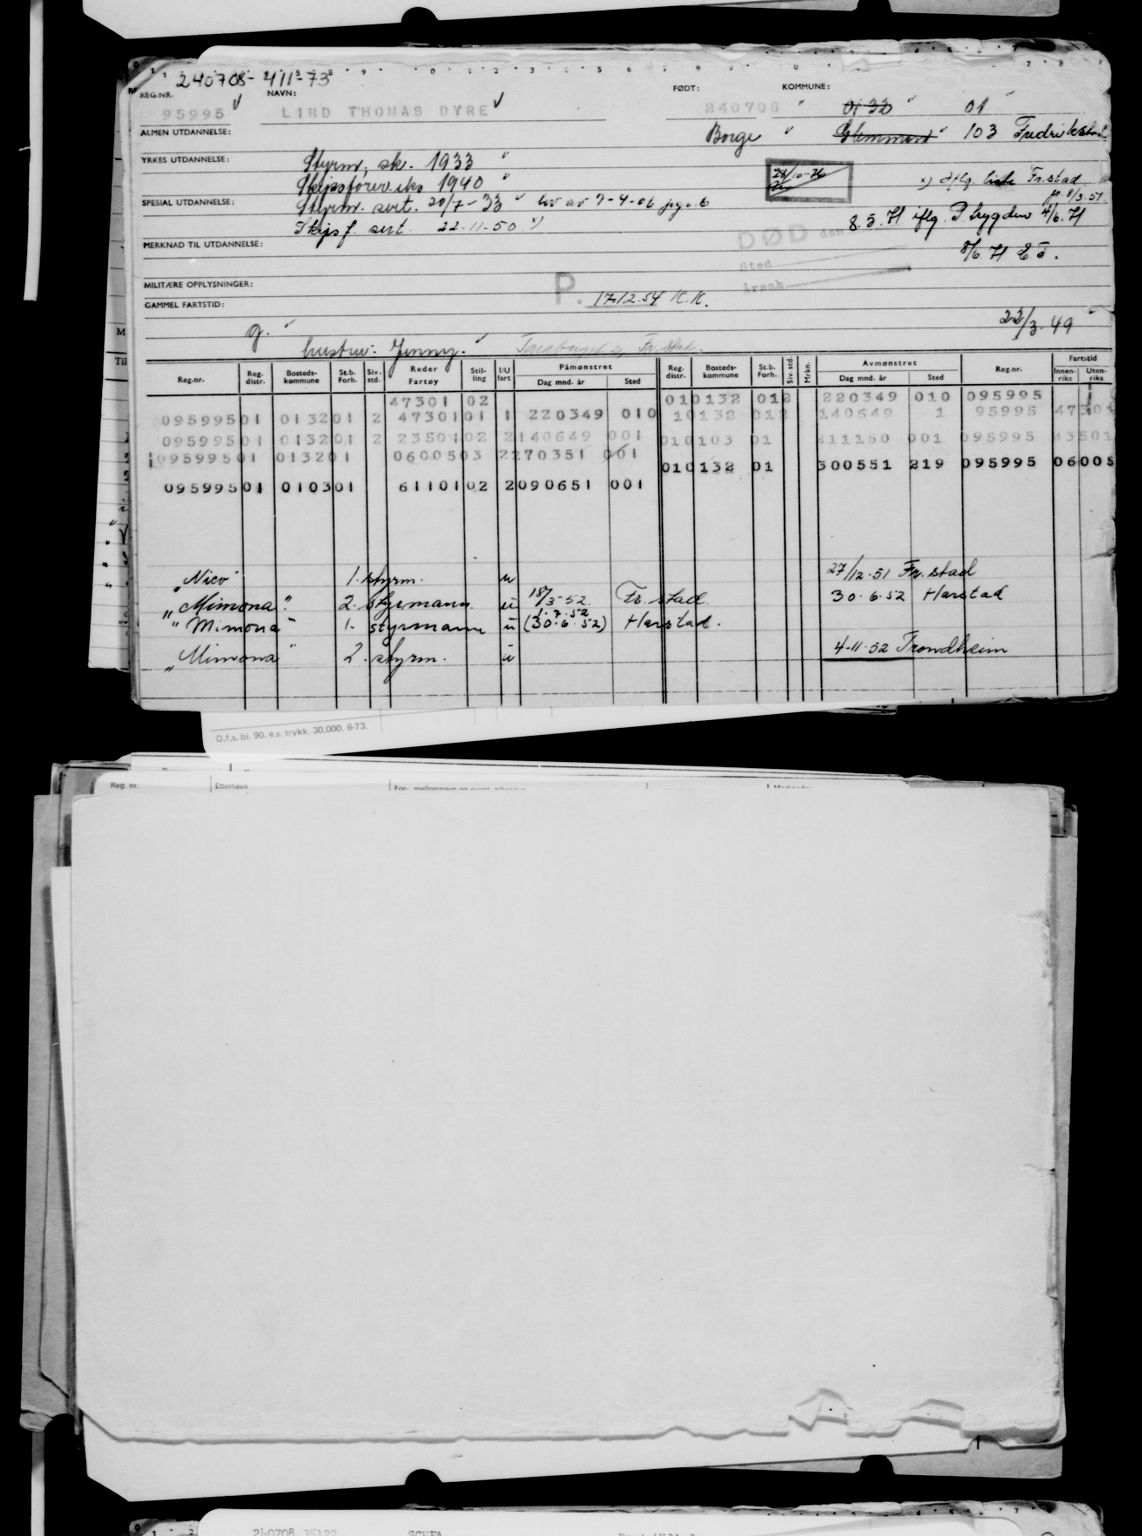 240708-41573
REG.NR. NAVN: FØDT: KOMMUNE:
95995 LIND THOMAS DYRE 240708 0132 01
ALMEN UTDANNELSE: Borge Glemmen 103 Fredrikstad
YRKES UTDANNELSE: Styrm. sk. 1933
Skipsførereks 1940
28/10-76
x) iflg. liste Fr.stad
SPESIAL UTDANNELSE: Styrm. sert. 20/7-33 lov av 7-4-06
8/3.51
Skipsf. sert. 22-11-50 x)
DØD den 8.5.71 iflg. P. trygden 4/6.71
MERKNAD TIL UTDANNELSE:
Sted
8/6.71
Årsak
MILITÆRE OPPLYSNINGER:
P. 17-12.54 K.K.
GAMMEL FARTSTID:
g. 22/3.49
hustru: Jenny. Fr.stad.
Reg.nr. Reg. distr. Bosteds- kommune St.b. Forh. Siv. std. Reder Fartøy Stil- ling I/U fart Påmønstret Dag mnd. år Sted Reg. distr. Bosteds- kommune St.b. Forh. Siv. std. Mrkn. Avmønstret Dag mnd. år Sted Reg.nr. Fartstid Innen- riks Uten- riks
47301 02 010132 012 220349 010 095995
095995 01 0132 01 2 47301 01 1 220349 010 10132 012 140649 1 95995 47301
095995 01 0132 01 2 23501 02 2 140649 001 010103 01 111150 001 095995 23501
095995 01 0132 01 06005 03 2 270351 001
010132 01 300551 219 095995 06005
095995 01 0103 01 61101 02 2 090651 001
"Nico" 1. styrm. u 27/12-51 Fr.stad
"Mimona" 2. styrmann u 18/3-52. Fr.stad. 30.6.52 Harstad
1.7.52
"Mimona" 1. styrmann u (30.6.52) Harstad.
"Mimona" 2. styrm. u 4-11-52 Trondheim
D.f.s. bl. 90. e.s. trykk. 30.000. 6-73.
Reg. nr. Etternavn
240708 35122